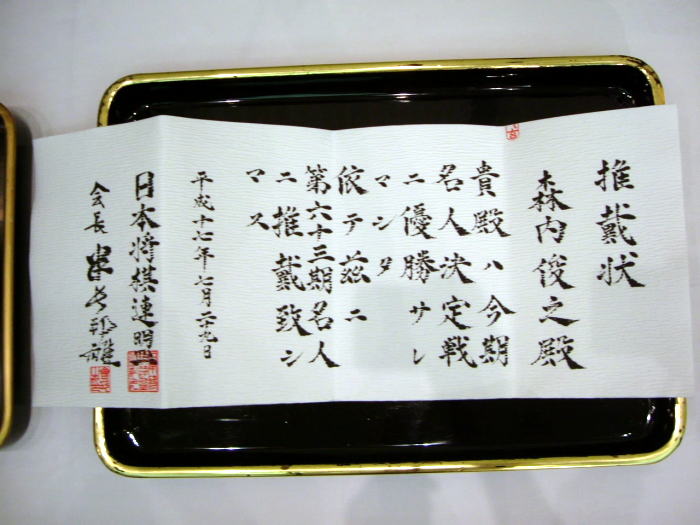 推戴状
森内俊之殿
貴殿ハ今期
名人決定戦
ニ優勝サレ
マシタ
依テ茲ニ
第六十三期名人
ニ推戴致シ
マス
平成十七年七月二十九日
日本将棋連盟
会長 米長邦雄